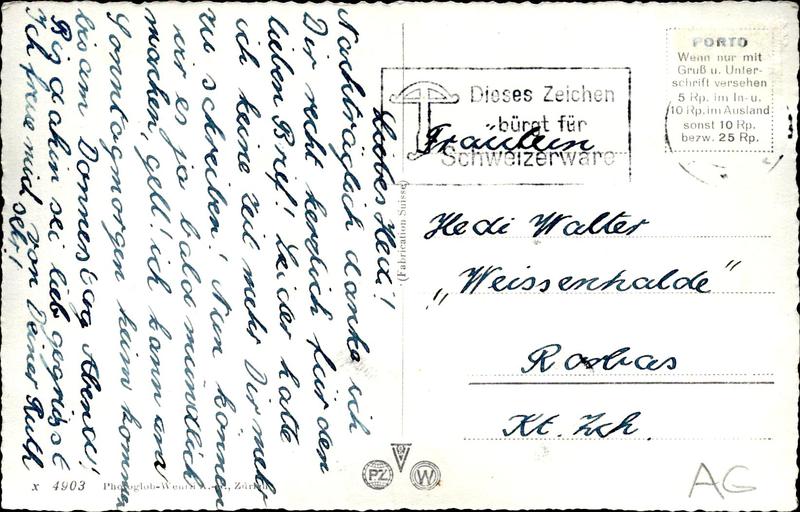 Liebes Hedi!
Nachträglich danke ich
Dir recht herzlich für den
lieben Brief! Leider hatte
ich keine Zeit mehr Dir mehr
zu schreiben! Nun können
wir es ja bald mündlich
machen, gell! ich kann am
Sonntagmorgen heim kommen
bis am Donnerstag Abend!
Bis dahin sei lieb gegrüsst
Ich freue mich sehr! von Deiner Ruth
x 4903 Photoglob-Wehrli A. G., Zürich
(Fabrication Suisse)
PZ
W
Dieses Zeichen
bürgt für
Schweizerware
PORTO
Wenn nur mit
Gruß u. Unter-
schrift versehen
5 Rp. im In- u.
10 Rp. im Ausland
sonst 10 Rp.
bezw. 25 Rp.
Fräulein
Hedi Walter
„Weissenhalde"
Rorbas
Kt. Zch.
AG